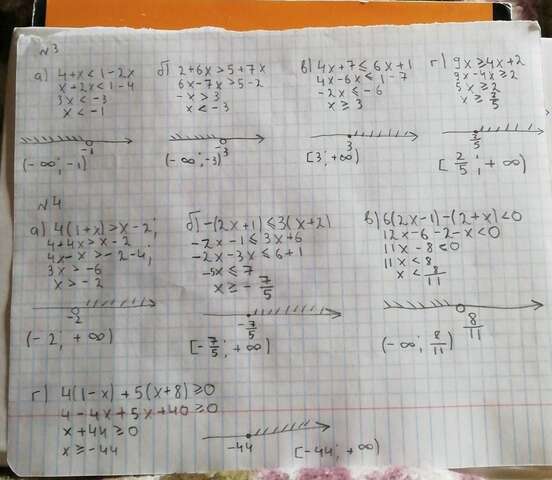 №3
а) 4+x < 1-2x
x+2x < 1-4
3x < -3
x < -1
-1
(-∞; -1)
б) 2+6x > 5+7x
6x-7x > 5-2
-x > 3
x < -3
-3
(-∞; -3)
в) 4x+7 ≤ 6x+1
4x-6x ≤ 1-7
-2x ≤ -6
x ≥ 3
3
[3; +∞)
г) 9x ≥ 4x+2
9x-4x ≥ 2
5x ≥ 2
x ≥ 2/5
2/5
[2/5; +∞)
№4
а) 4(1+x) > x-2;
4+4x > x-2
4x-x > -2-4;
3x > -6
x > -2
-2
(-2; +∞)
б) -(2x+1) ≤ 3(x+2)
-2x-1 ≤ 3x+6
-2x-3x ≤ 6+1
-5x ≤ 7
x ≥ -7/5
-7/5
[-7/5; +∞)
в) 6(2x-1)-(2+x) < 0
12x-6-2-x < 0
11x-8 < 0
11x < 8
x < 8/11
8/11
(-∞; 8/11)
г) 4(1-x)+5(x+8) ≥ 0
4-4x+5x+40 ≥ 0
x+44 ≥ 0
x ≥ -44
-44
[-44; +∞)